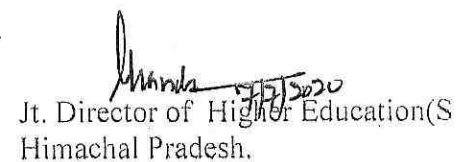 7/7/2020
Jt. Director of Higher Education(S
Himachal Pradesh.